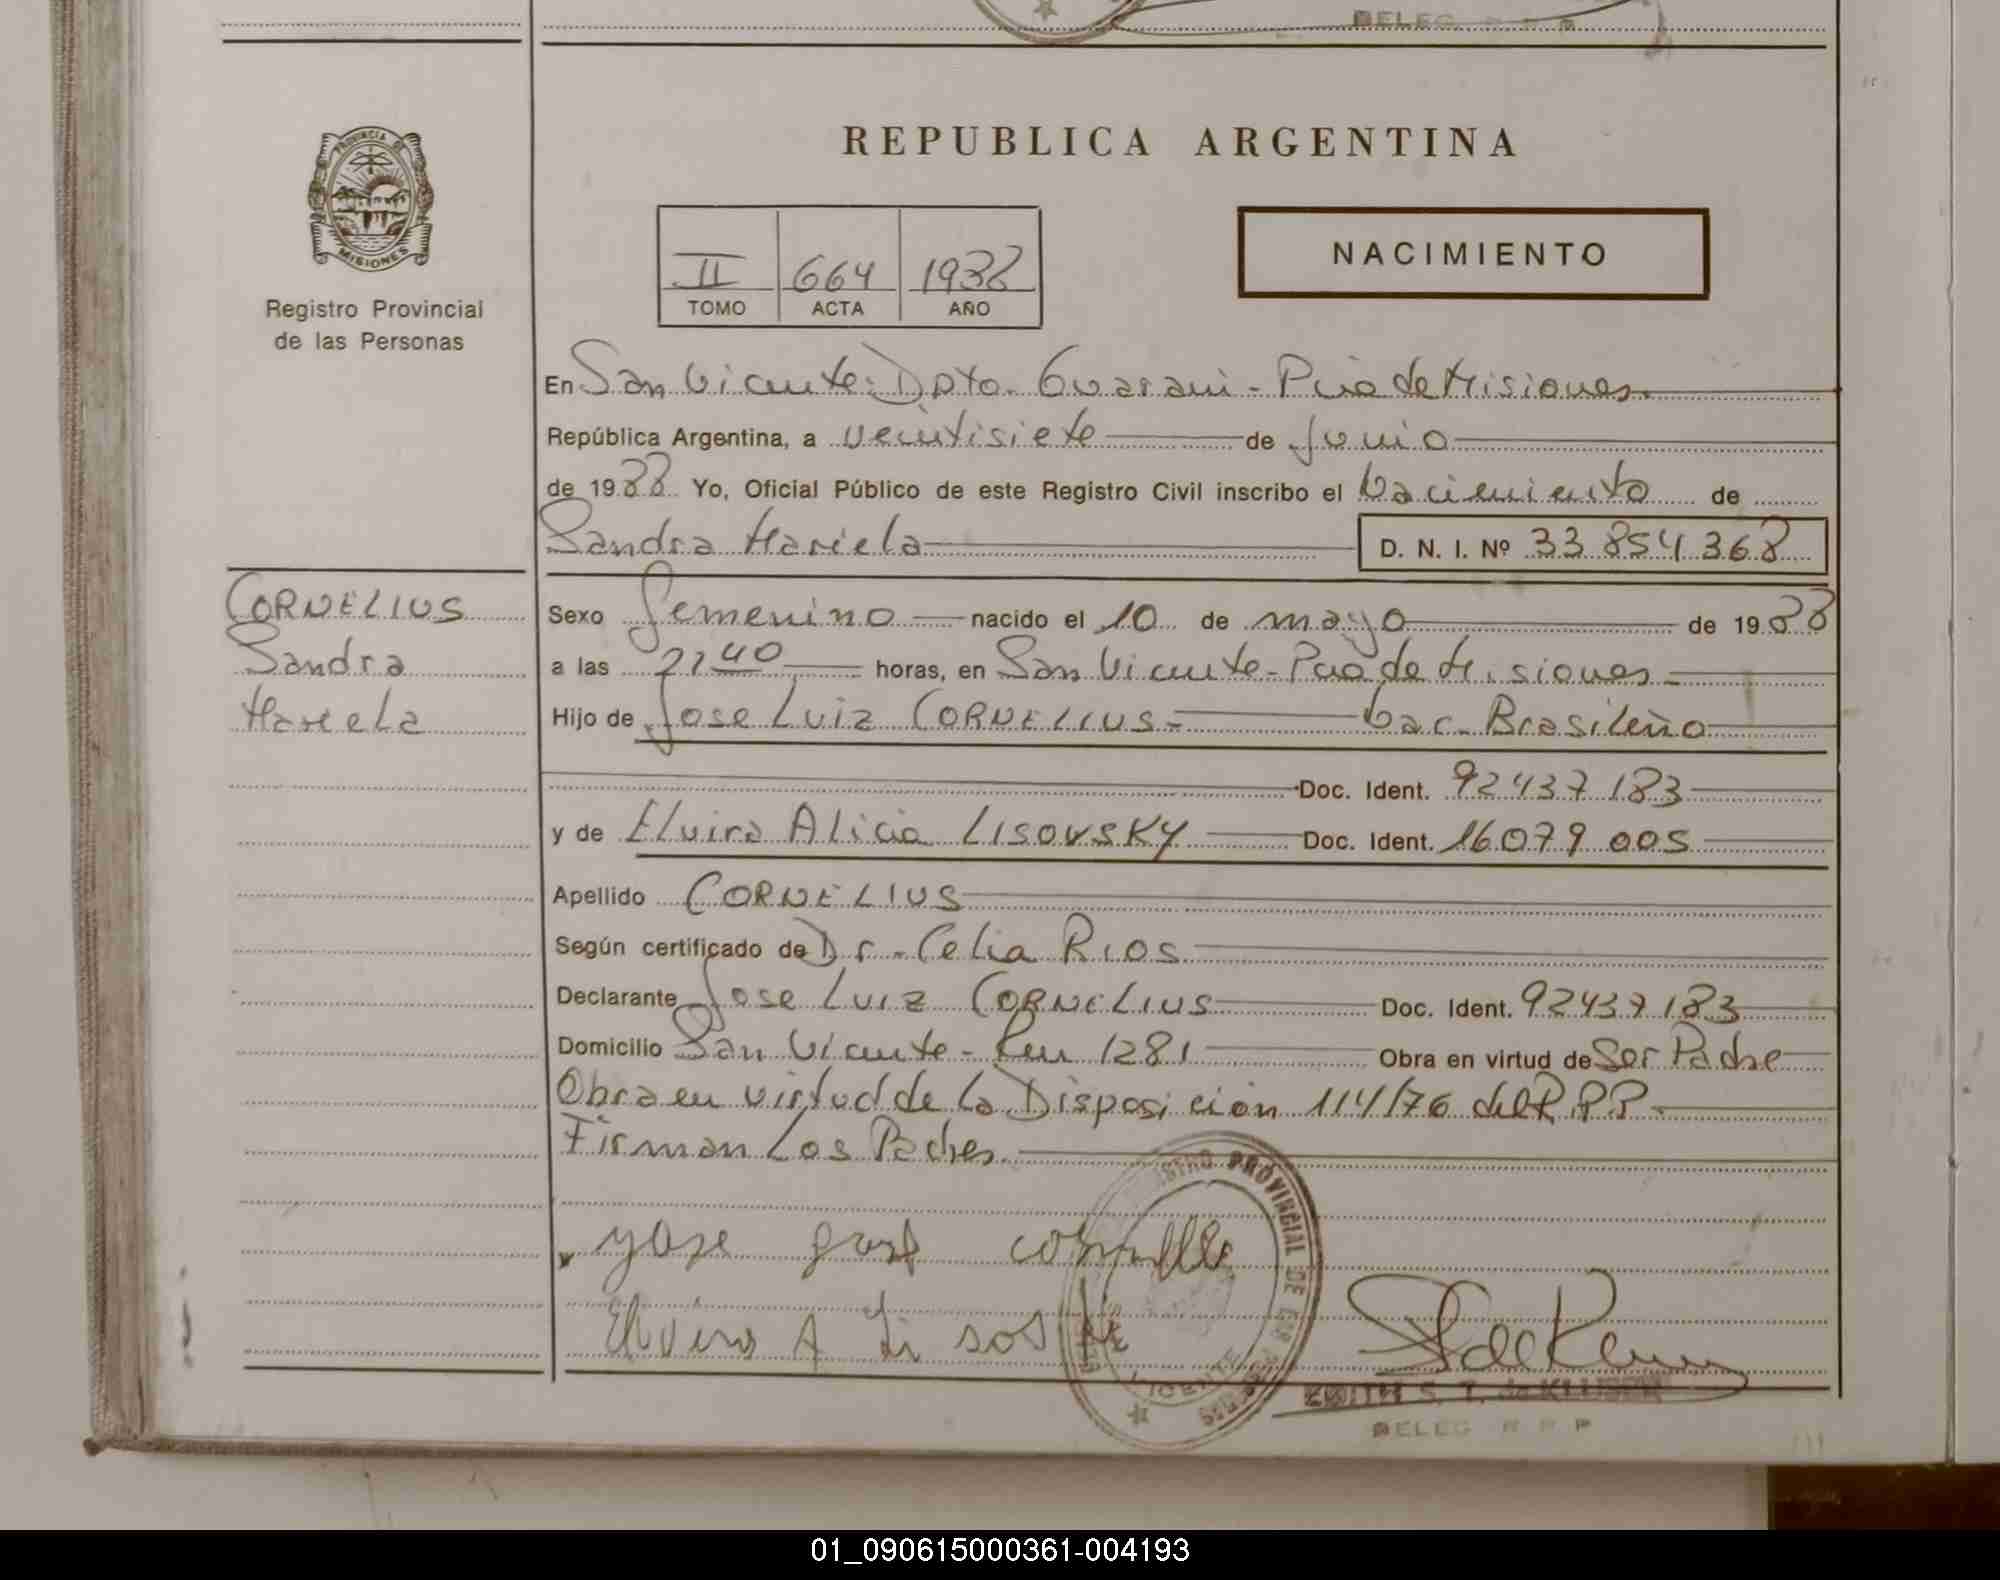 DELEG. R P P
REPUBLICA ARGENTINA
PROVINCIA DE
MISIONES
Registro Provincial
de las Personas
II 664 1988
TOMO ACTA AÑO
NACIMIENTO
En San Vicente-Dpto. Guarani-Pcia de Misiones.
República Argentina, a veintisiete de Junio
de 1988 Yo, Oficial Público de este Registro Civil inscribo el Nacimiento de
Sandra Mariela D. N. I. Nº 33 854 368
CORNELIUS
Sandra
Mariela
Sexo Femenino nacido el 10 de mayo de 1988
a las 21 40 horas, en San Vicente-Pcia de Misiones
Hijo de Jose Luiz CORNELIUS- Nac. Brasileño
Doc. Ident. 92437183
y de Elvira Alicia LISOVSKY Doc. Ident. 16079005
Apellido CORNELIUS
Según certificado de Dr. Celia RIOS
Declarante Jose Luiz CORNELIUS Doc. Ident. 92437183
Domicilio San Vicente- Km 1281 Obra en virtud de Ser Padre
Obra en virtud de la Disposición 114/76 del R.P.P.
Firman Los Padres
REGISTRO PROVINCIAL DE LAS PERSONAS
VICENTE
Elvira A Lisov
EDITH S. T. de KLUSER
DELEG R P P
01_090615000361-004193